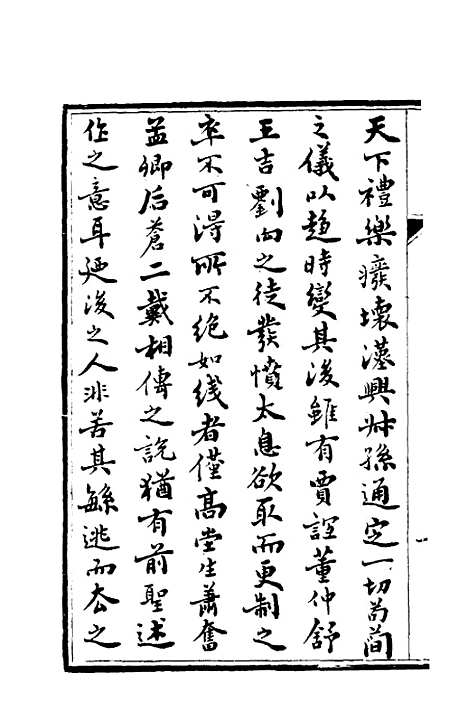 天下禮樂癈壞漢興叔孫通定一切茍簡
之儀以趍時變其後雖有賈誼董仲舒
王吉劉向之徒發憤太息欲取而更制之
率不可得所不絕如綫者僅高堂生蕭奮
孟卿后蒼二戴相傳之說猶有前聖述
作之意耳廼後之人非苦其緐逃而去之